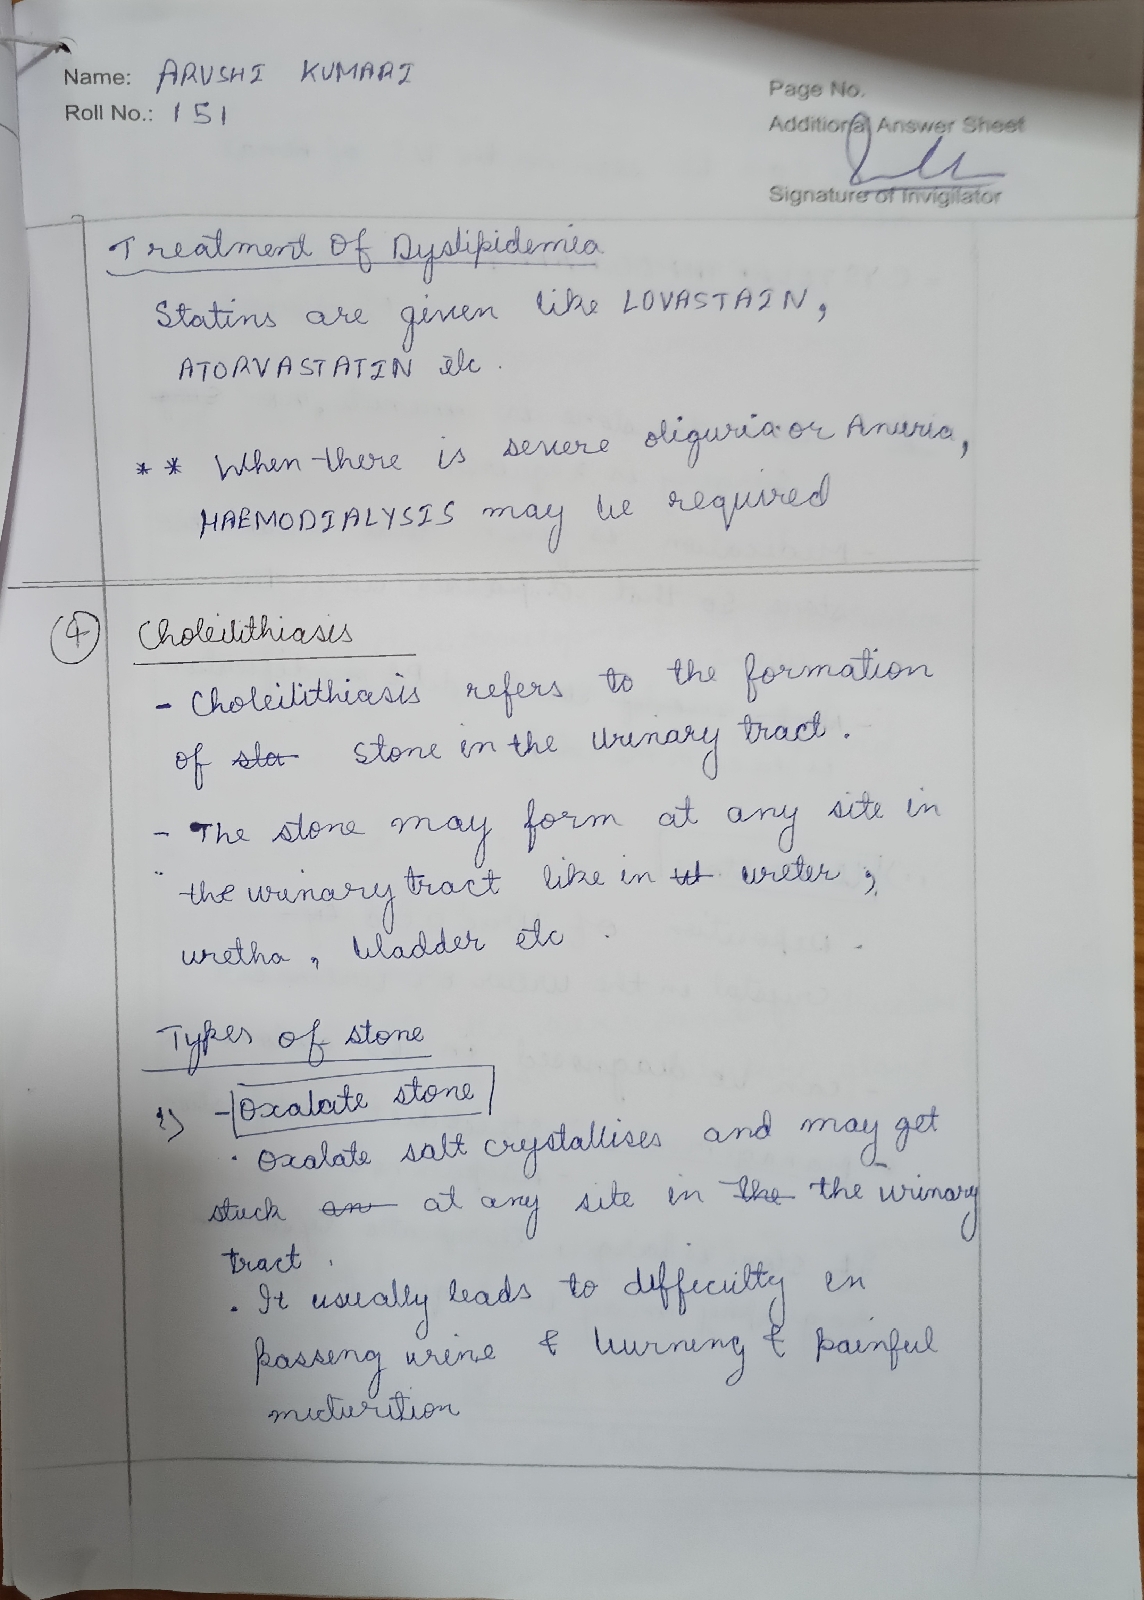 Name: ARUSHI KUMARI
Roll No.: 151
Page No.
Additional Answer Sheet
Signature of Invigilator
Treatment Of Dyslipidemia
Statins are given like LOVASTAIN,
ATORVASTATIN etc.
** When there is severe oliguria or Anuria,
HAEMODIALYSIS may be required
4 Choleilithiasis
- Choleilithiasis refers to the formation
of sto stone in the urinary tract.
- The stone may form at any site in
the urinary tract like in ut ureter,
uretha, bladder etc.
Types of stone
1) - Oxalate stone
• Oxalate salt crystallises and may get
stuck an at any site in the the urinary
tract.
• It usually leads to difficulty in
passing urine & burning & painful
micturition